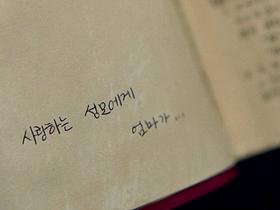 사랑하는 성모에게
엄마가...